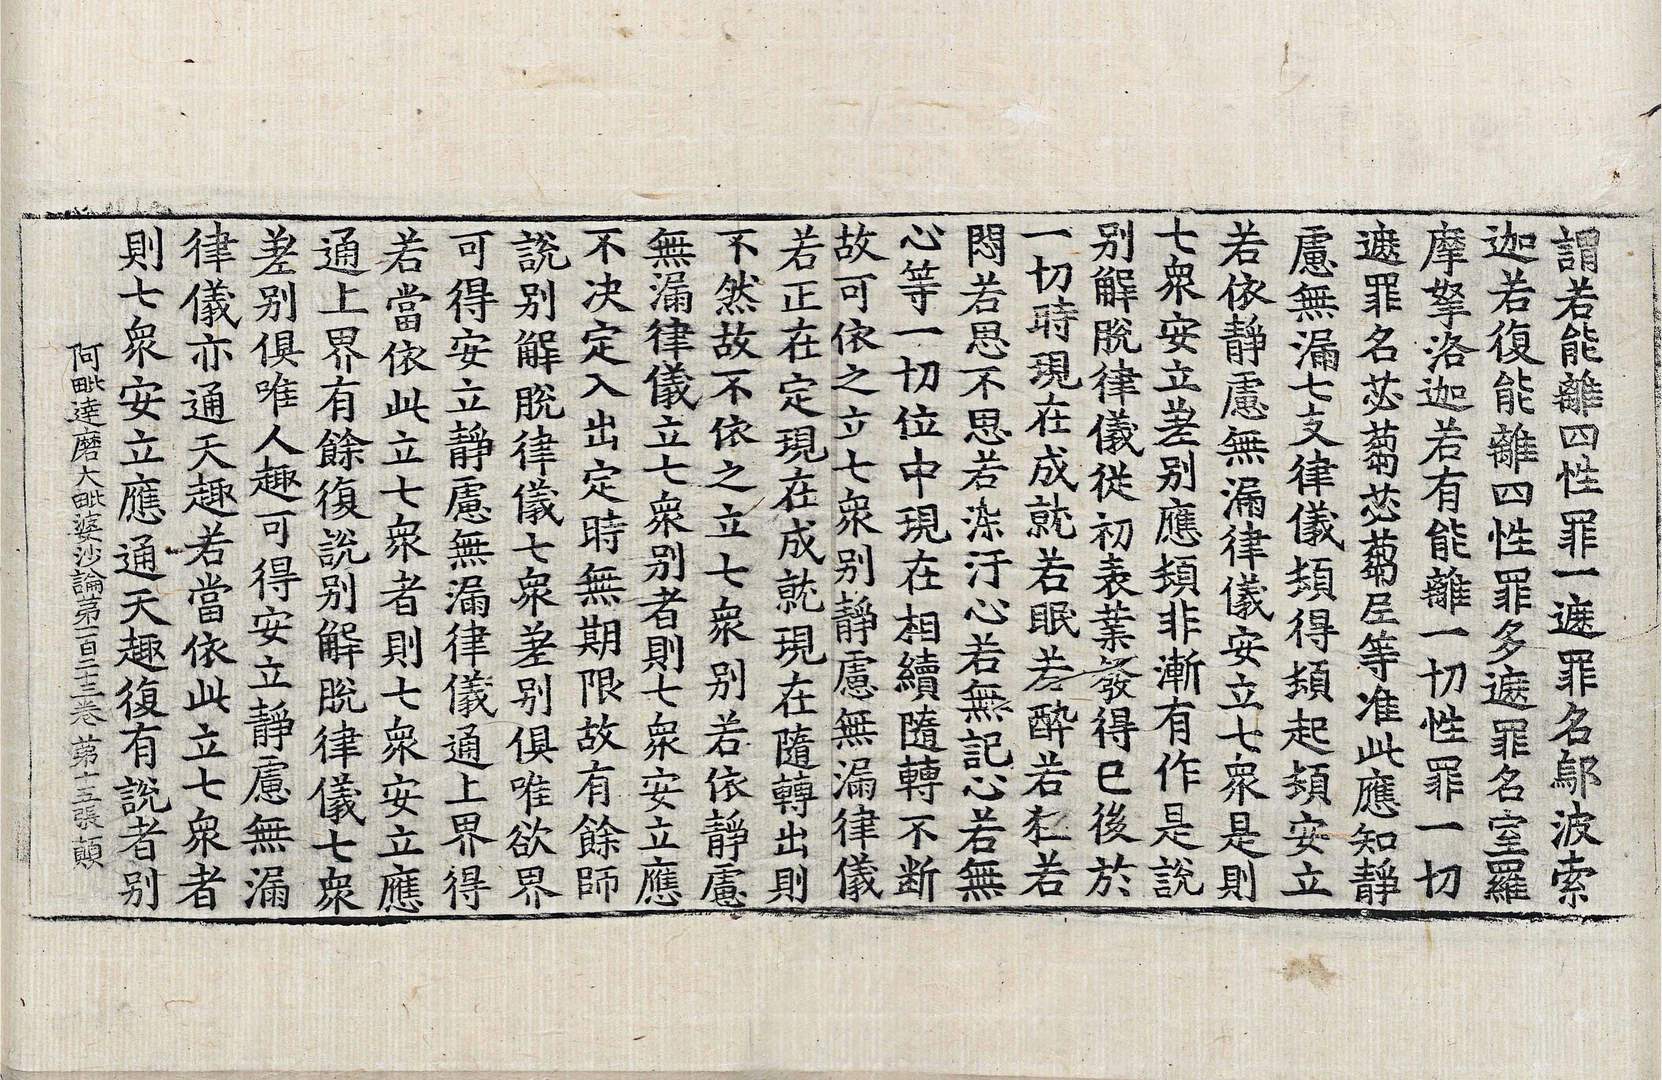 謂若能離四性罪一遮罪名鄔波索
迦若復能離四性罪多遮罪名室羅
摩拏洛迦若有能離一切性罪一切
遮罪名苾蒭苾蒭尼等准此應知靜
慮無漏七支律儀頓得頓起頓安立
若依靜慮無漏律儀安立七衆是則
七衆安立差别應頓非漸有作是說
别解脫律儀從初表業發得已後於
一切時現在成就若眠若醉若狂若
悶若思不思若染汙心若無記心若無
心等一切位中現在相續隨轉不断
故可依之立七衆别靜慮無漏律儀
若正在定現在成就現在隨轉出則
不然故不依之立七衆别若依靜慮
無漏律儀立七衆别者則七衆安立應
不决定入出定時無期限故有餘師
說别解脫律儀七衆差别俱唯欲界
可得安立靜慮無漏律儀通上界得
若當依此立七衆者則七衆安立應
通上界有餘復說别解脫律儀七衆
差别俱唯人趣可得安立靜慮無漏
律儀亦通天趣若當依此立七衆者
則七衆安立應通天趣復有說者别
阿毗達磨大毗婆沙論第一百二十三卷 第十五張 顛